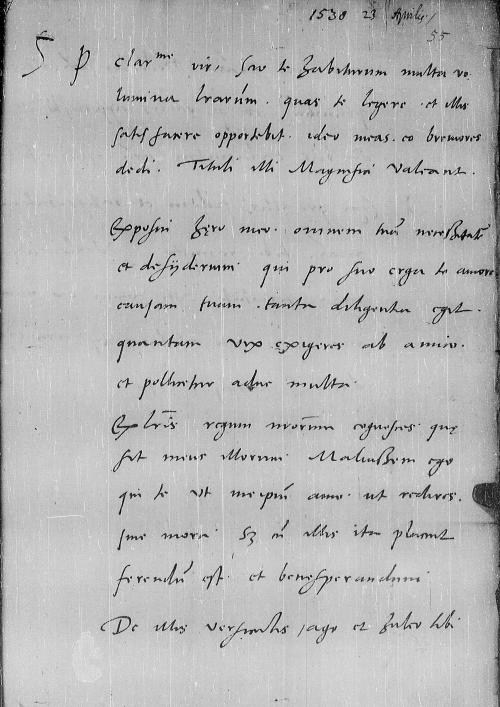 1530 23 Aprilis
55
S P Clar^me vir, scio te habiturum multa vo
lumina lrarum. quas te legere et illis
satisfacere opportebit. ideo meas eo breviores
dedi. Tituli illi Magnifici Valeant.
Exposui hero meo omnem tuā necessitatē
et desyderium qui pro suo erga te amore
causam tuam tanta diligentia egit.
quantam vix exigeres ab amico.
et pollicetur adhuc multa
Ex lris regum nrorum cognosces quę
sit mens illorum Maluissem ego
qui te ut meipsū amo. ut redires.
sine mora. Sz cū illis ita placuit
ferendū est. et bene sperandum
De illis versiculis ago et habeo tibi